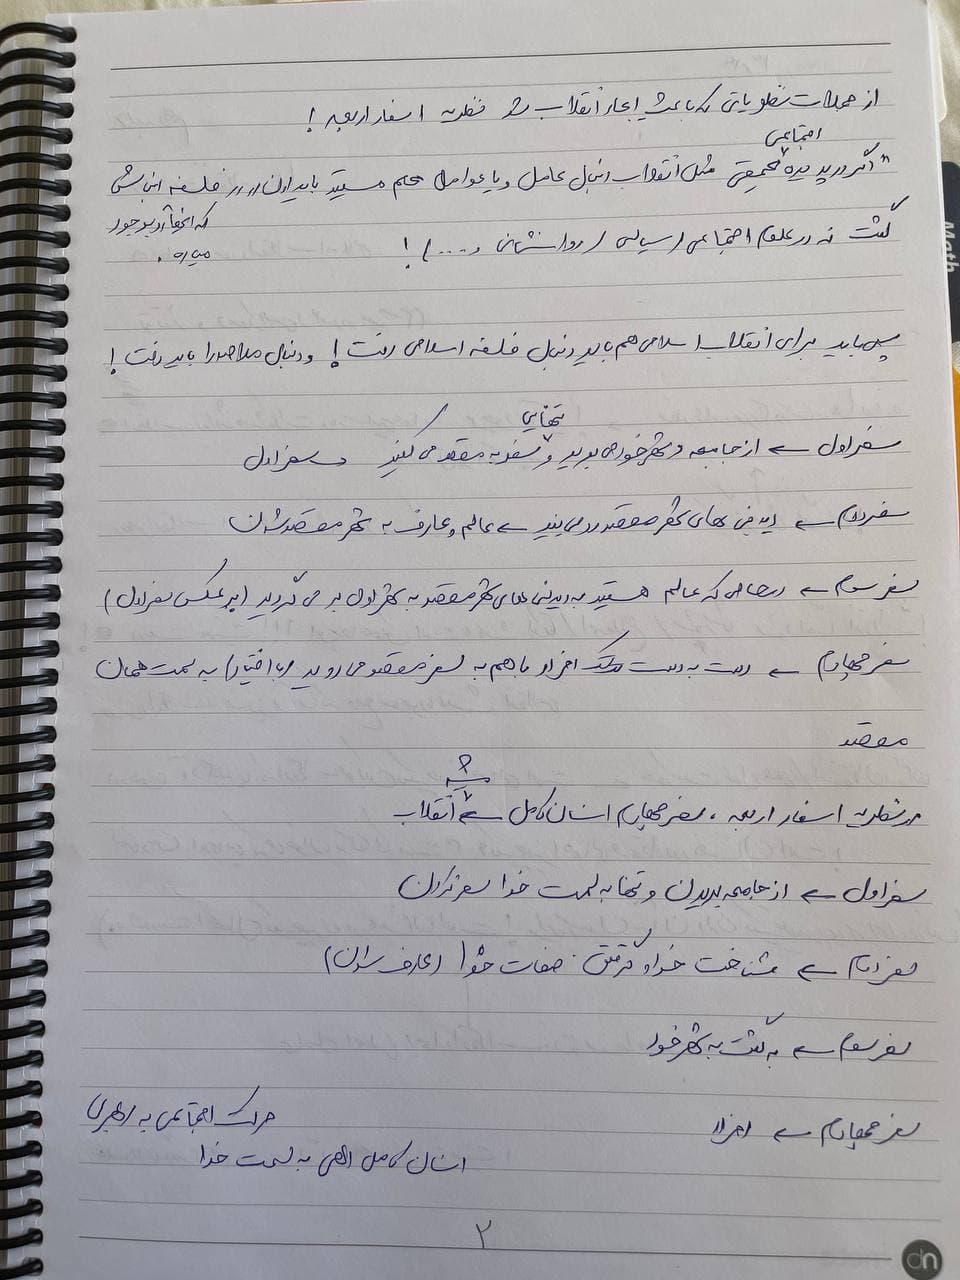 از جملات نظریاتی که باعث ایجاد انقلاب شد نظریه اسفار اربعه !
اجتماعی
" اگر در پدیده عمیقی مثل انقلاب دنبال عامل و یا عوامل هستید باید اون رو در فلسفه اش
گشت نه در علوم اجتماعی (سیاسی / روانشناسی و ....) !
که اتفاقا رو بوجود
میاره .
پس باید برای انقلاب اسلامی هم باید دنبال فلسفه اسلامی رفت ! و دنبال ملاصدرا باید رفت !
تنهایی
سفر اول ← از جامعه و شهر خود می برید و سفر به مقصد می کنید سفر اول
سفر دوم ← دیدنی های شهر مقصد رو می بیند ← عالم و عارف به شهر مقصد شدن
سفر سوم ← درحالی که عالم هستید به دیدنی های شهر مقصد به شهر اول بر می گردید (برعکس سفر اول)
سفر چهارم ← دست به دست افراد با هم به سفر مقصد می روید (با اختیار) به سمت همان
مقصد
?
در نظریه اسفار اربعه ، سفر چهارم انسان کامل ← انقلاب
سفر اول ← از جامعه بریدن و تنها به سمت خدا سفر کردن
سفر دوم ← شناخت خدا و گرفتن صفات خدا (عارف شدن)
سفر سوم ← برگشت به شهر خود
سفر چهارم ← افراد حرکت اجتماعی به رهبری
انسان کامل الهی به سمت خدا
۲
Math
dn